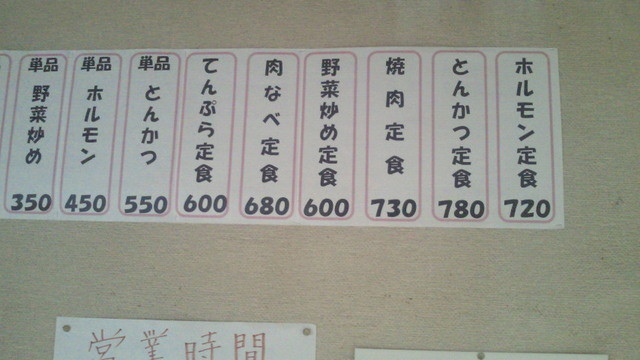 ホルモン定食 720
とんかつ定食 780
焼肉定食 730
野菜炒め定食 600
肉なべ定食 680
てんぷら定食 600
単品 とんかつ 550
単品 ホルモン 450
単品 野菜炒め 350
営業時間